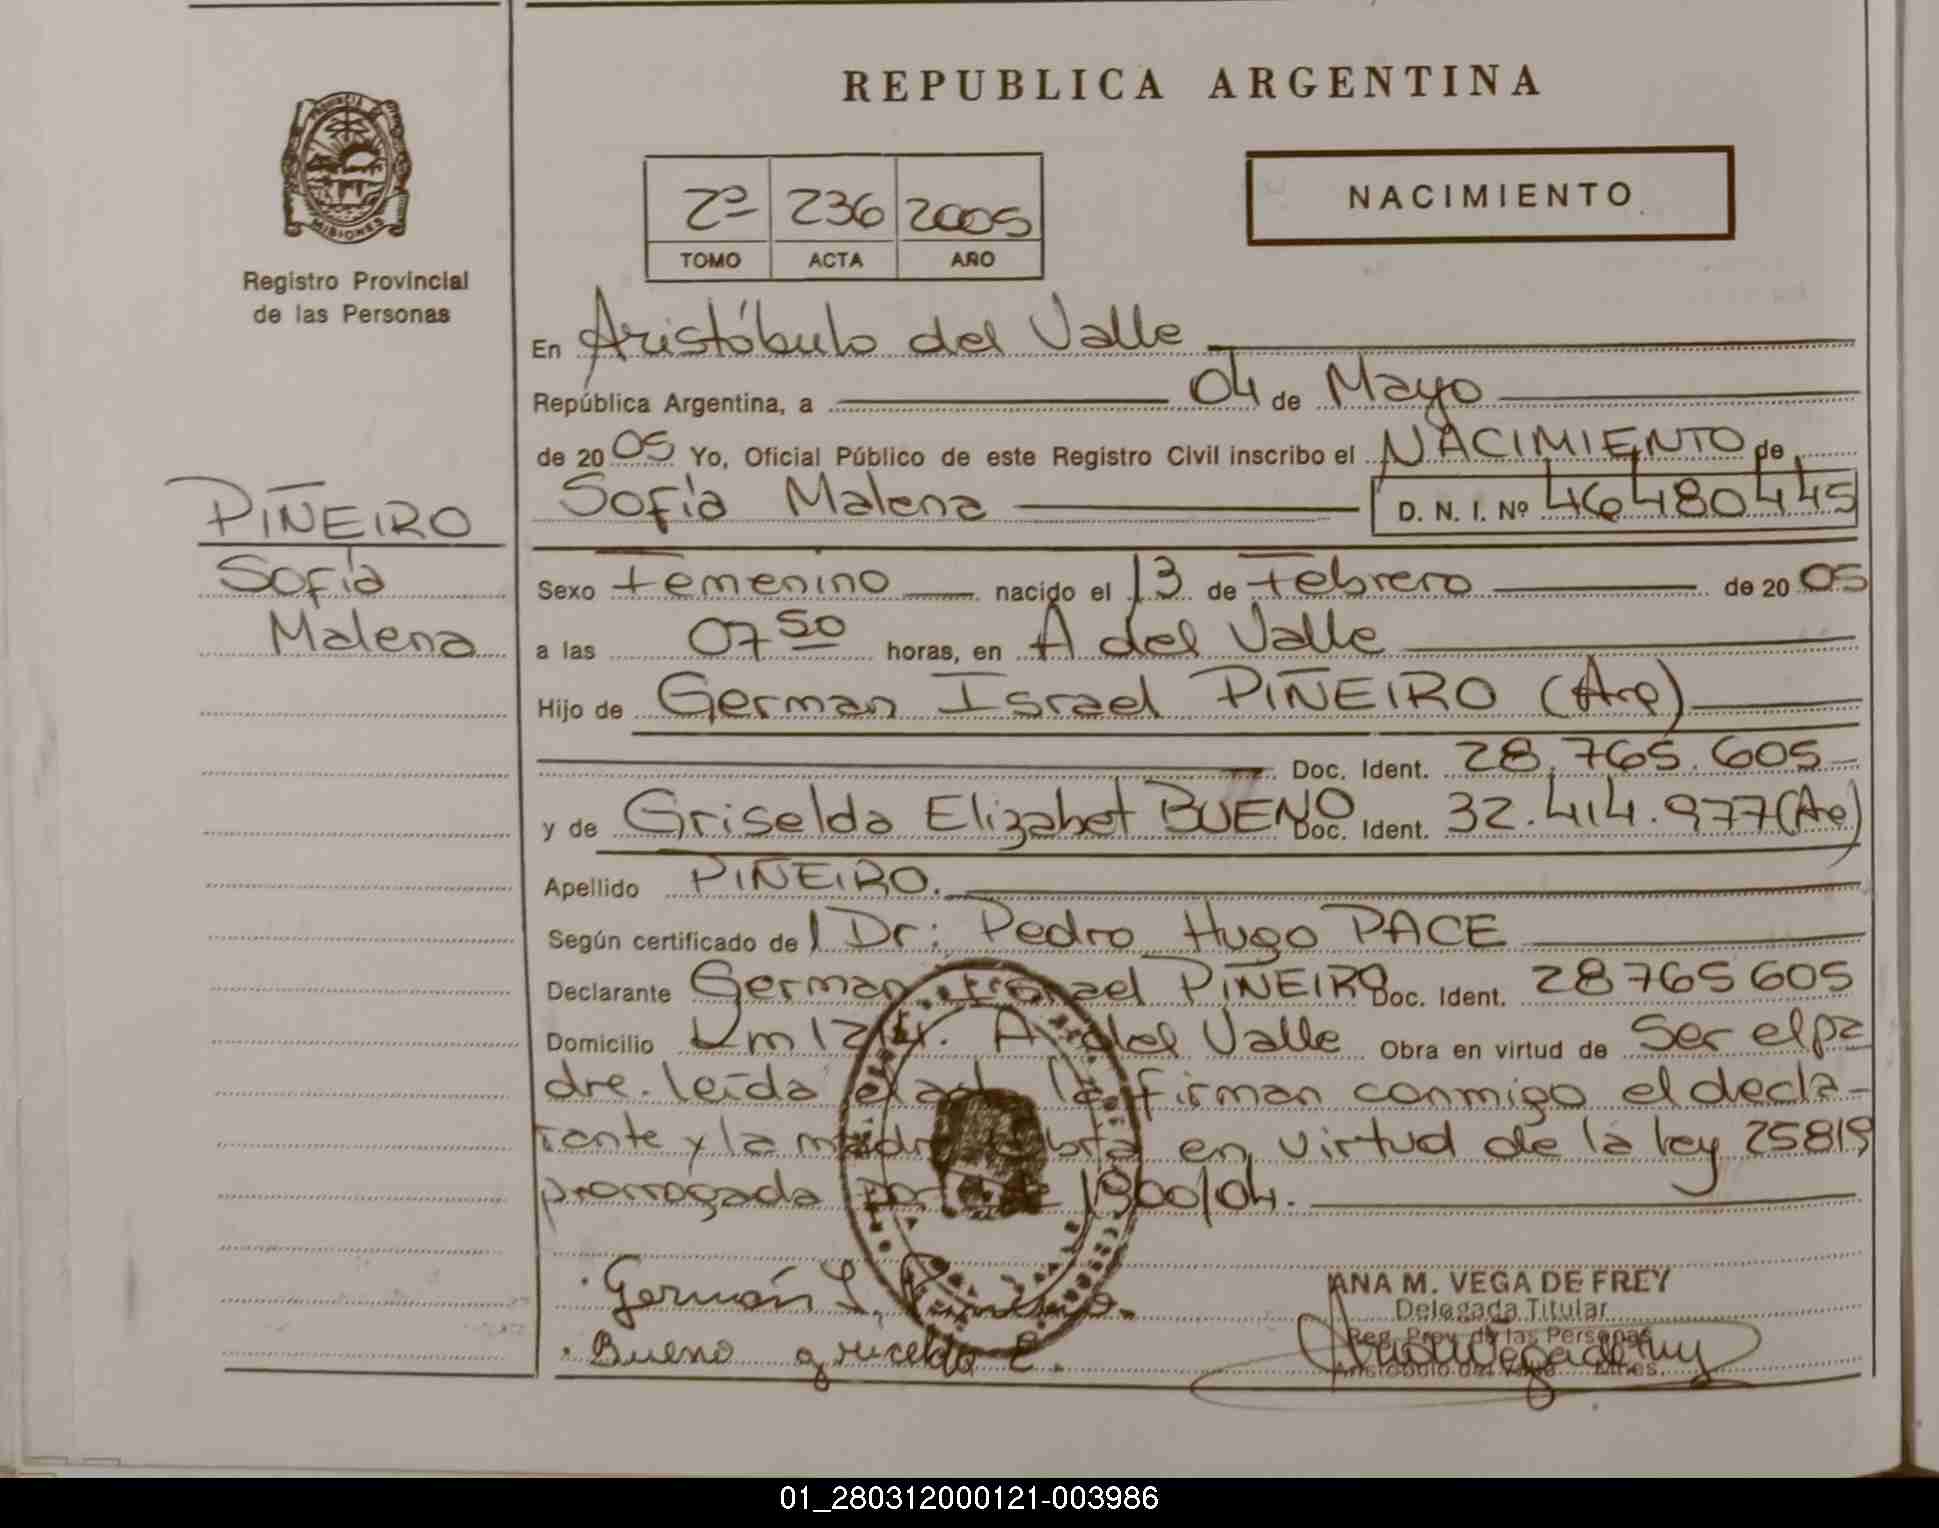 REPUBLICA ARGENTINA
NACIMIENTO
2º 236 2005
TOMO ACTA AÑO
MISIONES
Registro Provincial
de las Personas
PIÑEIRO
Sofía
Malena
En Aristóbulo del Valle
República Argentina, a 04 de Mayo
de 2005 Yo, Oficial Público de este Registro Civil inscribo el NACIMIENTO de
Sofía Malena D. N. I. Nº 46480445
Sexo Femenino nacido el 13 de Febrero de 2005
a las 07 50 horas, en A del Valle
Hijo de German Israel PIÑEIRO (Arg)
Doc. Ident. 28.765.605
y de Griselda Elizabet BUENO Doc. Ident. 32.414.977 (Ar)
Apellido PIÑEIRO.
Según certificado del Dr: Pedro Hugo PACE
Declarante German Israel PIÑEIRO Doc. Ident. 28765605
Domicilio Km 1214. A del Valle Obra en virtud de Ser el pa
dre. leída el acta la firman conmigo el decla-
rante y la madre obra en virtud de la ley 25819
prorrogada por 1900/04.
Germán I.
Bueno griselda E.
ANA M. VEGA DE FREY
Delegada Titular
Reg. Prov. de las Personas
Aristóbulo del Valle Mnes.
01_280312000121-003986